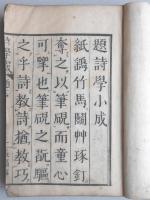 題詩學小成
紙鷂竹馬鬭艸琢釘
奪之以筆硯而童心
可也筆硯之翫驅
之乎詩教詩猶教巧